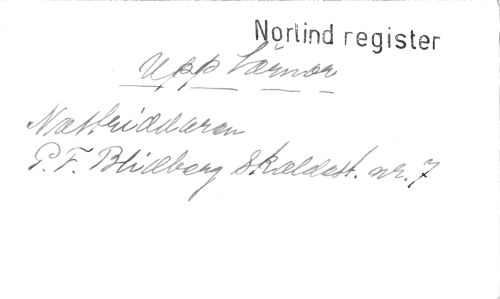 Norlind register
Upp Värnar
Nattriddaren
P. F. Blidberg Skaldest. nr. 7